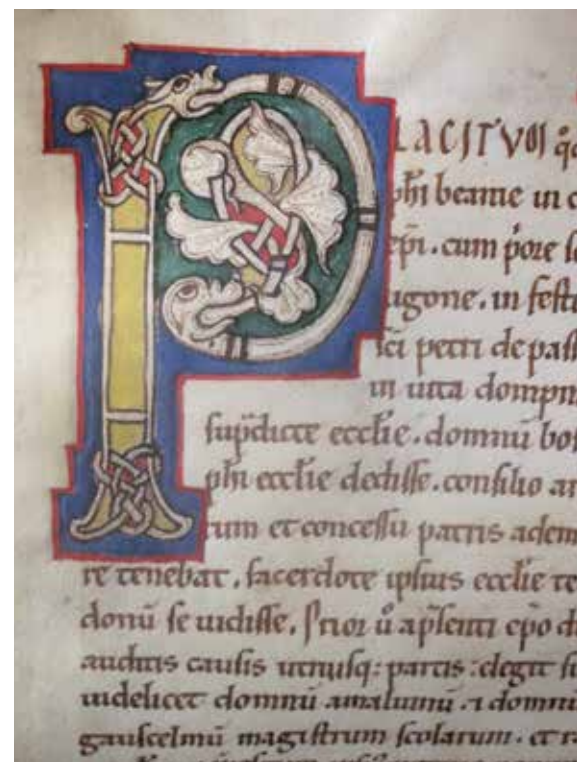 PLACITVM
ph̄i
ep̄i. cum p̄ore
ugone. in
sc̄i petri de
in uita
sup̄dicte eccl̄ie. domnū
ph̄i eccl̄ie dedisse. consilio
rum et concessu patris
re tenebat. sacerdote ipsius eccl̄ie
donū se uidisse. Prior ů ap̄senti ep̄o
auditis causis utriusq; partis: elegit
uidelicet domnū amaluinū. ⁊ domnū
gauscelmū magistrum scolarum. et